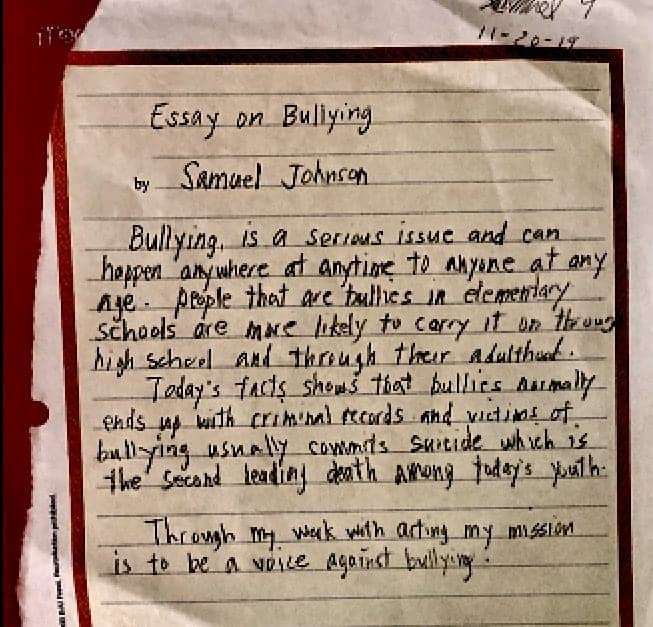 Samuel 9
11-20-19
Essay on Bullying
by Samuel Johnson
Bullying, is a serious issue and can
happen anywhere at anytime to anyone at any
age. people that are bullies in elementary
schools are more likely to carry it on throug
high school and through their adulthood.
Today's facts shows that bullies normally
ends up with criminal records and victims of
bullying usually commits suicide which is
the second leading death among today's youth.
Through my work with acting my mission
is to be a voice against bullying.